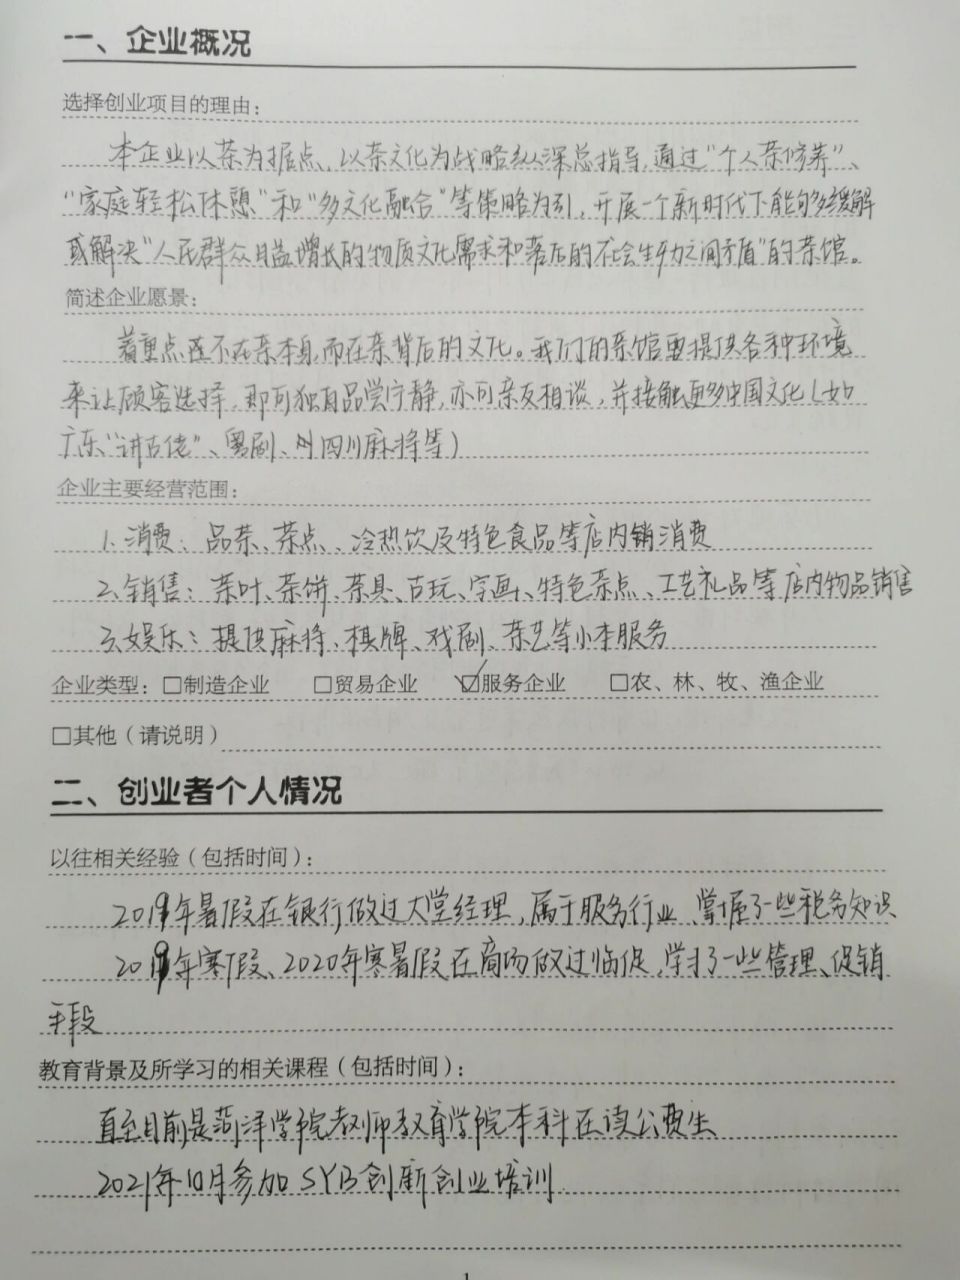 一、企业概况
选择创业项目的理由：
本企业以茶为据点、以茶文化为战略纵深总指导，通过“个人茶修养”、
“家庭轻松休憩”和“多文化融合”等策略为引，开展一个新时代下能够缓解
或解决“人民群众日益增长的物质文化需求和落后的社会生产力之间矛盾”的茶馆。
简述企业愿景：
着重点不在茶本身，而在茶背后的文化。我们的茶馆要提供各种环境
来让顾客选择，即可独自品尝宁静，亦可亲友相谈，并接触更多中国文化（如
广东“讲古佬”、粤剧、四川麻将等）
企业主要经营范围：
1. 消费：品茶、茶点、冷热饮及特色食品等店内销消费
2. 销售：茶叶、茶饼、茶具、古玩、字画、特色茶点、工艺礼品等店内物品销售
3. 娱乐：提供麻将、棋牌、戏剧、茶艺等小本服务
企业类型：□制造企业 □贸易企业 ☑服务企业 □农、林、牧、渔企业
□其他（请说明）
二、创业者个人情况
以往相关经验（包括时间）：
2019年暑假在银行做过大堂经理，属于服务行业、掌握了一些税务知识
2019年寒假、2020年寒暑假在商场做过临促，学习了一些管理、促销
手段
教育背景及所学习的相关课程（包括时间）：
直至目前是菏泽学院教师教育学院本科在读公费生
2021年10月参加SYB创新创业培训
1